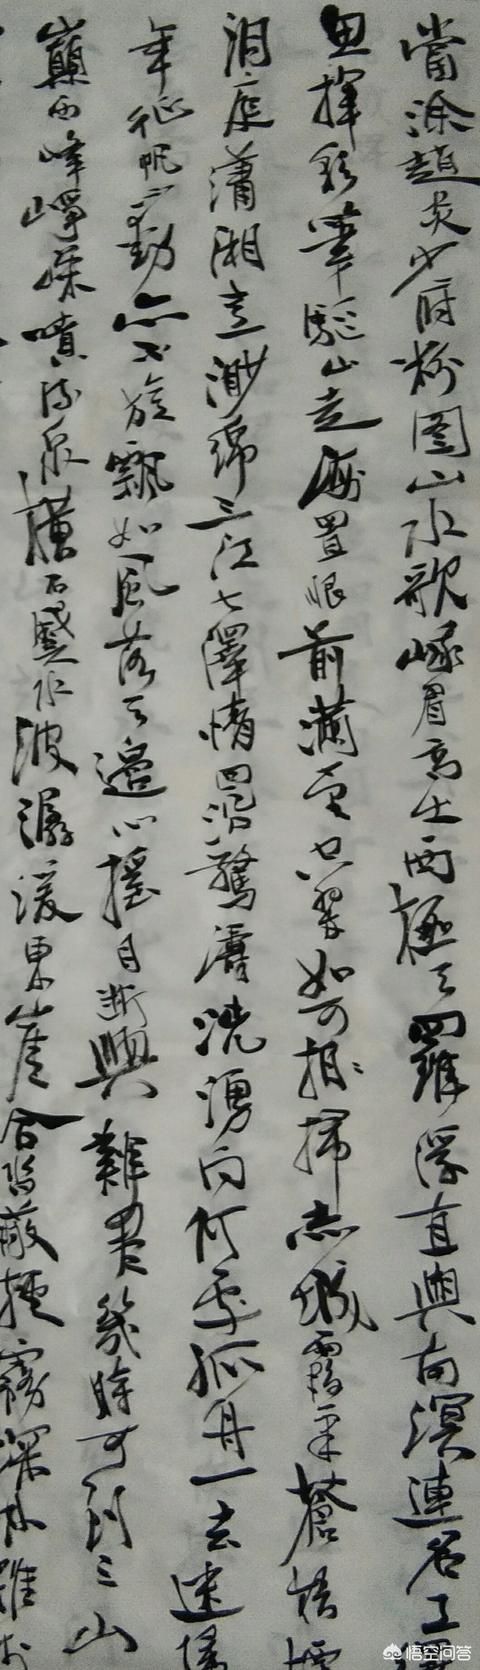 當塗趙炎少府粉圖山水歌峨眉高出西極天羅浮直與南溟連名工繹
思揮彩筆驅山走海置眼前滿堂空翠如可掃赤城霞氣蒼梧煙
洞庭瀟湘意渺綿三江七澤情洄沿驚濤洶湧向何處孤舟一去迷歸
年征帆不動亦不旋飄如風落天邊心搖目斷興難盡幾時可到三山
巔西峰崢嶸噴流泉橫石蹙水波潺湲東崖合沓蔽輕霧深林雜樹
悟空问答